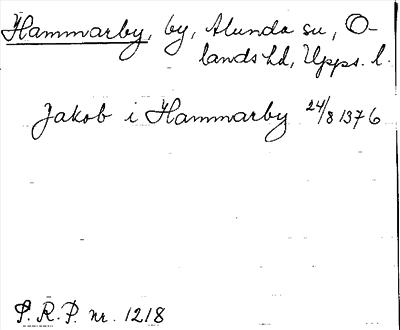 Hammarby, by, Alunda su, O-
lands hd, Upps. l.
Jakob i Hammarby 24/8 1376
S. R. P. nr. 1218